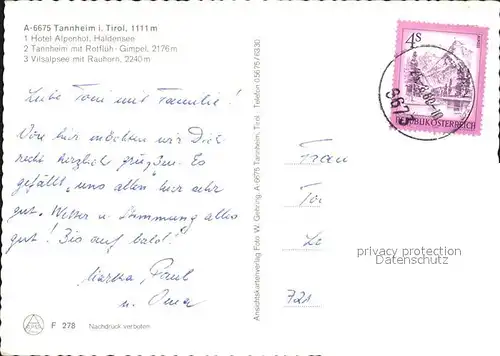 A-6675 Tannheim i. Tirol, 1111 m
1 Hotel Alpenhof, Haldensee
2 Tannheim mit Rotflüh - Gimpel, 2176 m
3 Vilsalpsee mit Rauhorn, 2240 m
Liebe Toni mit Familie!
Von hier möchten wir Dich
recht herzlich grüßen. Es
gefällt uns allen hier sehr
gut. Wetter u. Stimmung alles
gut! Bis auf bald!
Martha, Paul
u. Oma
F 278 Nachdruck verboten
Ansichtskartenverlag Foto W. Gehring, A-6675 Tannheim, Tirol Telefon 05675/6330
4s
REPUBLIK ÖSTERREICH
6675
Frau
To
72
privacy protection
www.oldthing.de